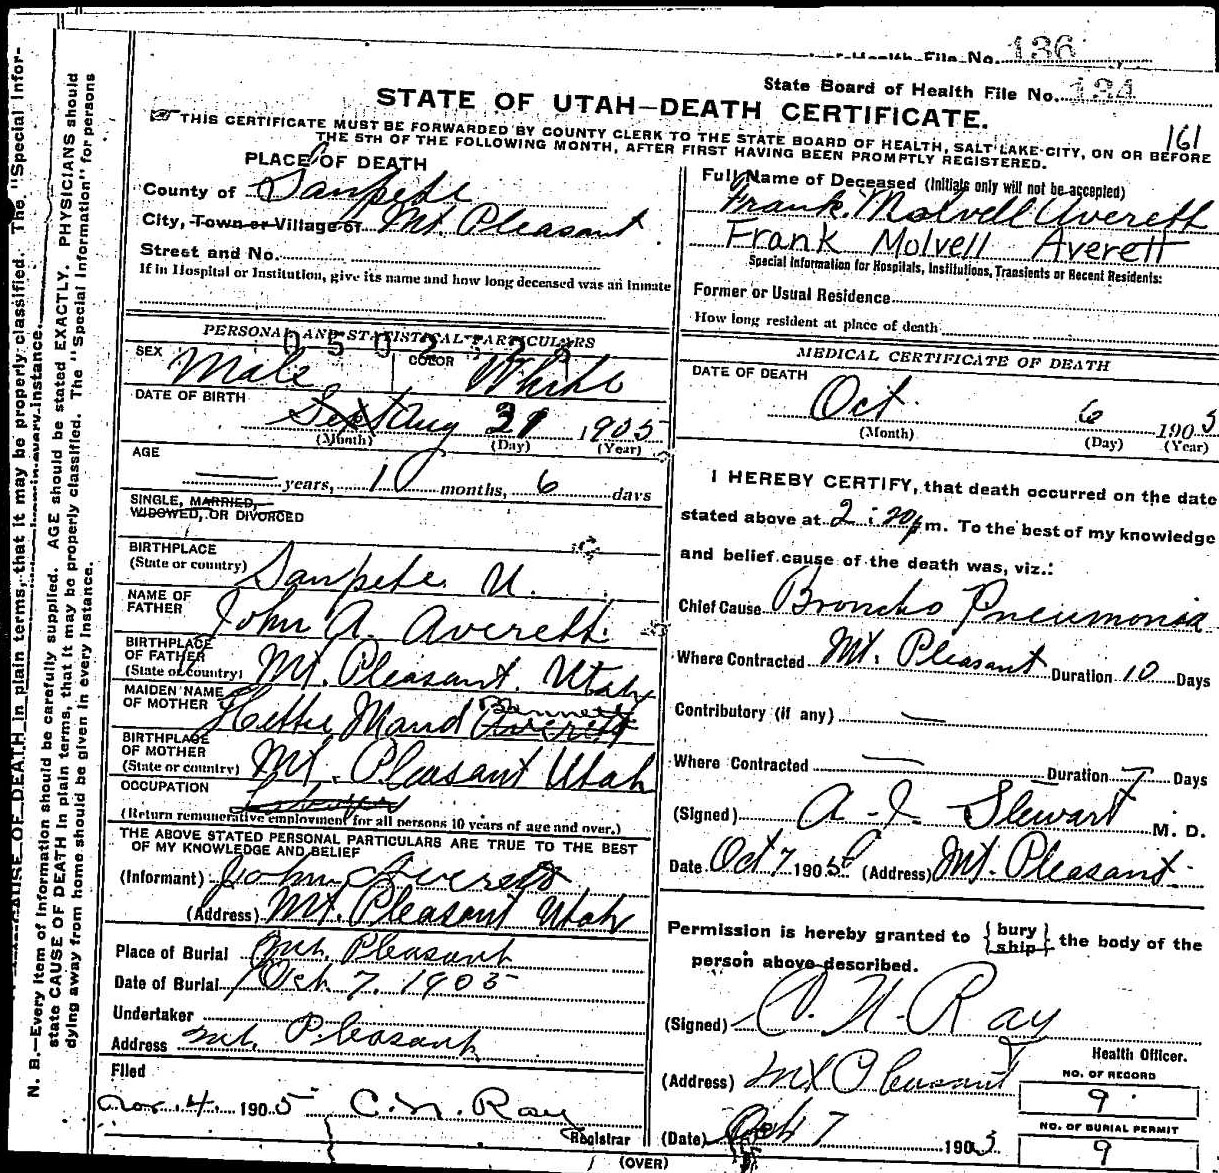 Health File No. 136
State Board of Health File No. 134
STATE OF UTAH—DEATH CERTIFICATE.
161
THIS CERTIFICATE MUST BE FORWARDED BY COUNTY CLERK TO THE STATE BOARD OF HEALTH, SALT LAKE CITY, ON OR BEFORE
THE 5TH OF THE FOLLOWING MONTH, AFTER FIRST HAVING BEEN PROMPTLY REGISTERED.
PLACE OF DEATH
County of Sanpete
City, Town or Village of Mt. Pleasant.
Street and No.
If in Hospital or Institution, give its name and how long deceased was an inmate
PERSONAL AND STATISTICAL PARTICULARS
SEX Male COLOR White
DATE OF BIRTH
Sept Aug 31 1905
(Month) (Day) (Year)
AGE
— years, 1 months, 6 days
SINGLE, MARRIED,
WIDOWED, OR DIVORCED
BIRTHPLACE
(State or country) Sanpete U.
NAME OF
FATHER John A. Averett
BIRTHPLACE
OF FATHER
(State or country) Mt. Pleasant. Utah
MAIDEN NAME
OF MOTHER Hettie Maud Averett Bennett
BIRTHPLACE
OF MOTHER
(State or country) Mt. Pleasant Utah
OCCUPATION
(Return remunerative employment for all persons 10 years of age and over.)
THE ABOVE STATED PERSONAL PARTICULARS ARE TRUE TO THE BEST
OF MY KNOWLEDGE AND BELIEF
(Informant) John Averett
(Address) Mt. Pleasant Utah
Place of Burial Mt. Pleasant
Date of Burial Oct. 7. 1905
Undertaker
Address Mt. Pleasant
Filed
Nov. 4. 1905 C. N. Ray
Registrar
Full Name of Deceased (Initials only will not be accepted)
Frank. Molvell Averett
Frank Molvell Averett
Special Information for Hospitals, Institutions, Transients or Recent Residents:
Former or Usual Residence
How long resident at place of death
MEDICAL CERTIFICATE OF DEATH
DATE OF DEATH
Oct. 6 1905
(Month) (Day) (Year)
I HEREBY CERTIFY, that death occurred on the date
stated above at 2:20 p m. To the best of my knowledge
and belief cause of the death was, viz.:
Chief Cause Broncho Pneumonia
Where Contracted Mt. Pleasant Duration 10 Days
Contributory (if any) —
Where Contracted — Duration Days
(Signed) Stewart M. D.
Date Oct 7 1905 (Address) Mt. Pleasant.
Permission is hereby granted to {bury ship} the body of the
person above described.
(Signed) C. N. Ray
Health Officer.
(Address) Mt Pleasant
(Date) Oct 7 1905
NO. OF RECORD
9
NO. OF BURIAL PERMIT
9
(OVER)
N. B.—Every item of information should be carefully supplied. AGE should be stated EXACTLY. PHYSICIANS should
state CAUSE OF DEATH in plain terms, that it may be properly classified. The "Special Information" for persons
dying away from home should be given in every instance.